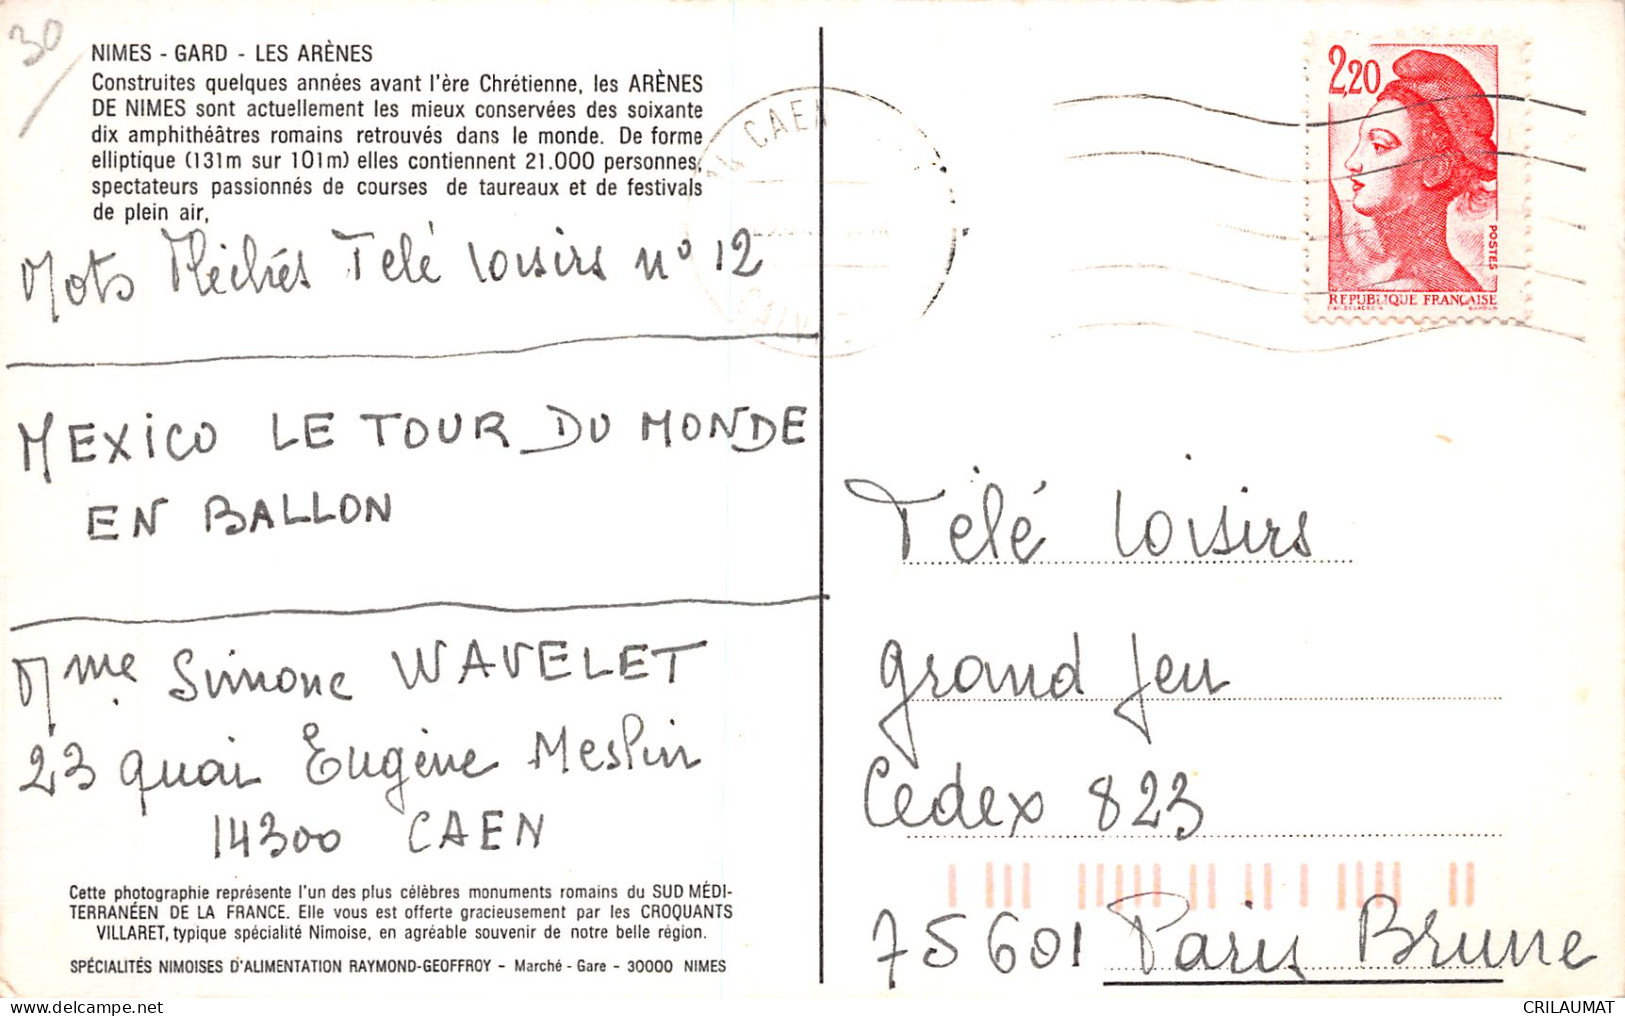 30
NIMES - GARD - LES ARÈNES
Construites quelques années avant l'ère Chrétienne, les ARÈNES
DE NIMES sont actuellement les mieux conservées des soixante
dix amphithéâtres romains retrouvés dans le monde. De forme
elliptique (131m sur 101m) elles contiennent 21.000 personnes,
spectateurs passionnés de courses de taureaux et de festivals
de plein air,
Mots Fléchés Télé Loisirs n° 12
MEXICO LE TOUR DU MONDE
EN BALLON
Mme Simone WAVELET
23 quai Eugène Meslin
14300 CAEN
Cette photographie représente l'un des plus célèbres monuments romains du SUD MÉDI-
TERRANÉEN DE LA FRANCE. Elle vous est offerte gracieusement par les CROQUANTS
VILLARET, typique spécialité Nimoise, en agréable souvenir de notre belle région.
SPÉCIALITÉS NIMOISES D'ALIMENTATION RAYMOND-GEOFFROY - Marché - Gare - 30000 NIMES
14 CAEN
2,20
POSTES
REPUBLIQUE FRANÇAISE
Télé Loisirs
grand Jeu
Cedex 823
75601 Paris Brune
CRILAUMAT